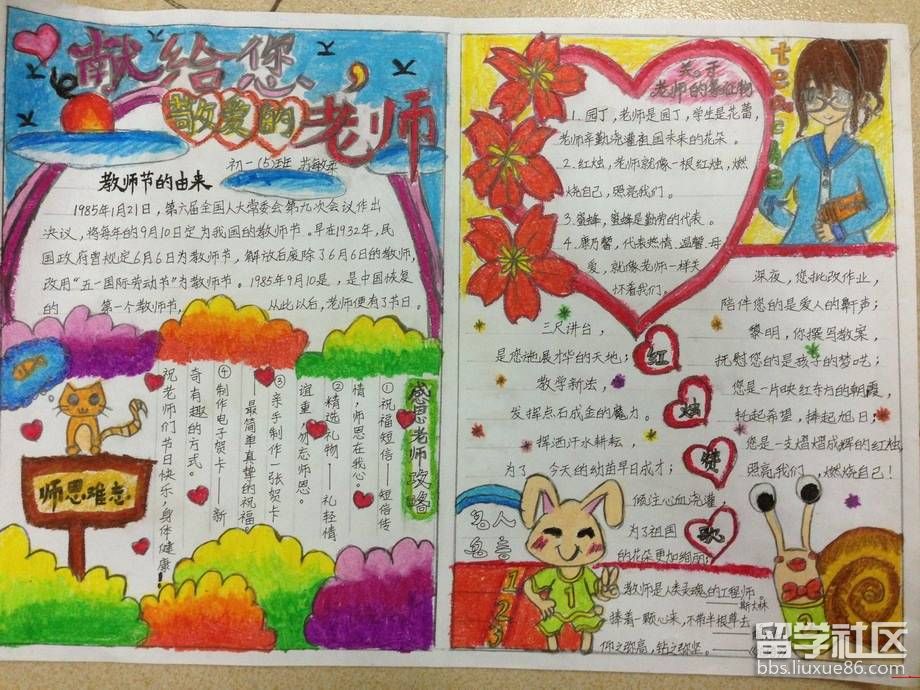 献给您、
敬爱的老师
初一（5）班
教师节的由来
1985年1月21日，第六届全国人大常委会第九次会议作出
决议，将每年的9月10日定为我国的教师节。早在1932年，民
国政府曾规定6月6日为教师节，解放后废除了6月6日的教师节，
改用“五一国际劳动节”为教师节。1985年9月10是，是中国恢复
的 第一个教师节， 从此以后，老师便有了节日。
感恩老师攻略
①祝福短信——短信传
情，师恩在我心。
②精选礼物——礼轻情
谊重，勿忘师恩。
③亲手制作一张贺卡
——最简单真挚的祝福
④制作电子贺卡——新
奇有趣的方式。
祝老师们节日快乐，身体健康！
师恩难忘
关于
老师的象征物
1.园丁，老师是园丁，学生是花蕾，
老师辛勤浇灌祖国未来的花朵。
2.红烛，老师就像一根红烛，燃
烧自己，照亮我们。
3.蜜蜂，蜜蜂是勤劳的代表。
4.康乃馨，代表热情 温馨 母
爱，就像老师一样关
怀着我们。
teacher
红
烛
赞
歌
三尺讲台，
是您施展才华的天地；
教学新法，
发挥点石成金的魔力。
挥洒汗水耕耘，
为了 今天的幼苗早日成才；
倾注心血浇灌，
为了祖国
的花朵更加绚丽；
深夜，您批改作业，
陪伴您的是爱人的鼾声；
黎明，你撰写教案，
抚慰您的是孩子的梦呓；
您是一片映红东方的朝霞，
托起希望，捧起旭日；
您是一支熠熠成辉的红烛，
照亮我们，燃烧自己！
名人
名言
1
2
3
1
教师是人类灵魂的工程师。
——斯大林
捧着一颗心来，不带半根草去
仰之弥高，钻之弥坚。
留学社区
bbs.liuxue86.com